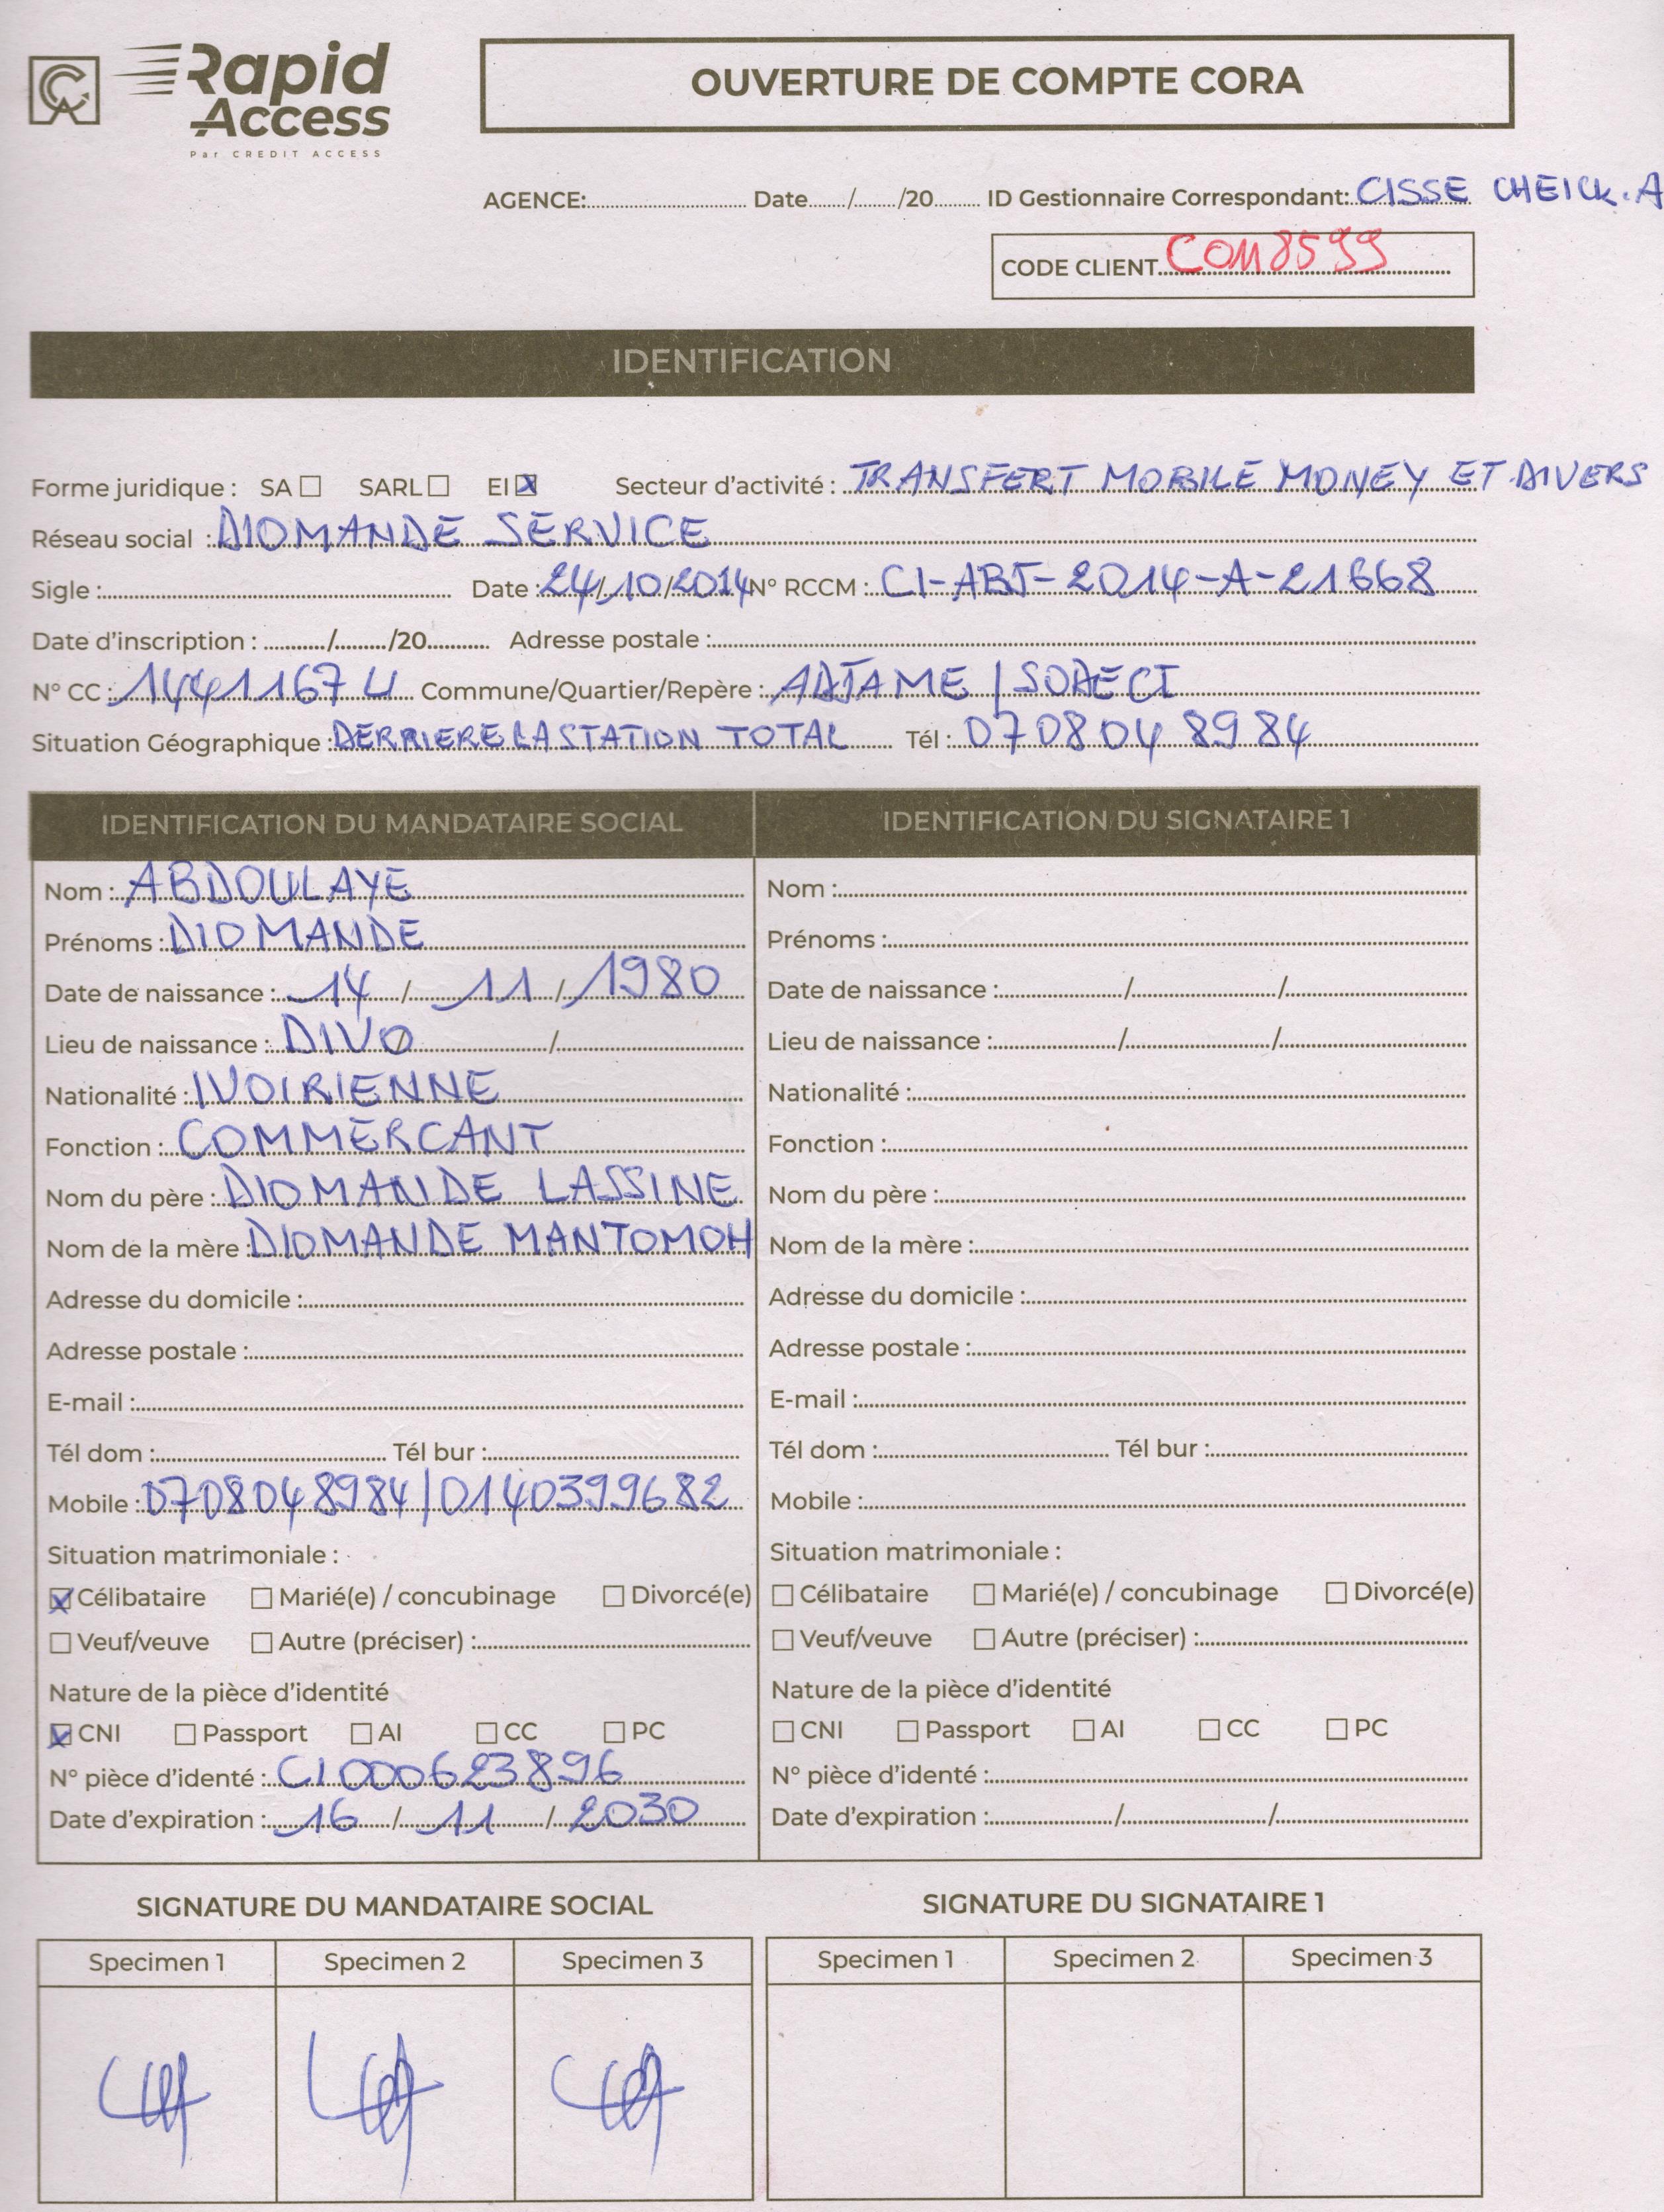 CA Rapid Access
Par CREDIT ACCESS
OUVERTURE DE COMPTE CORA
AGENCE:............ Date....../....../20...... ID Gestionnaire Correspondant: CISSE CHEICK.A
CODE CLIENT COM8599
IDENTIFICATION
Forme juridique : SA ☐ SARL ☐ EI ☒ Secteur d'activité : TRANSFERT MOBILE MONEY ET DIVERS
Réseau social : DIOMANDE SERVICE
Sigle :............ Date : 24/10/2014 N° RCCM : CI-ABJ-2014-A-21668
Date d'inscription : ....../....../20...... Adresse postale :............
N° CC : 1441167 U Commune/Quartier/Repère : ADJAME | SODECI
Situation Géographique : DERRIERE LA STATION TOTAL Tél : 0708048984
IDENTIFICATION DU MANDATAIRE SOCIAL
Nom : ABDOULAYE
Prénoms : DIOMANDE
Date de naissance : 14 / 11 / 1980
Lieu de naissance : DIVO / /
Nationalité : IVOIRIENNE
Fonction : COMMERCANT
Nom du père : DIOMANDE LASSINE
Nom de la mère : DIOMANDE MANTOMOH
Adresse du domicile :............
Adresse postale :............
E-mail :............
Tél dom :............ Tél bur :............
Mobile : 0708048984 | 0140399682
Situation matrimoniale :
☒ Célibataire ☐ Marié(e) / concubinage ☐ Divorcé(e)
☐ Veuf/veuve ☐ Autre (préciser) :............
Nature de la pièce d'identité
☒ CNI ☐ Passport ☐ AI ☐ CC ☐ PC
N° pièce d'identé : CI000623896
Date d'expiration : 16 / 11 / 2030
IDENTIFICATION DU SIGNATAIRE 1
Nom :............
Prénoms :............
Date de naissance :....../....../......
Lieu de naissance :....../....../......
Nationalité :............
Fonction :............
Nom du père :............
Nom de la mère :............
Adresse du domicile :............
Adresse postale :............
E-mail :............
Tél dom :............ Tél bur :............
Mobile :............
Situation matrimoniale :
☐ Célibataire ☐ Marié(e) / concubinage ☐ Divorcé(e)
☐ Veuf/veuve ☐ Autre (préciser) :............
Nature de la pièce d'identité
☐ CNI ☐ Passport ☐ AI ☐ CC ☐ PC
N° pièce d'identé :............
Date d'expiration :....../....../......
SIGNATURE DU MANDATAIRE SOCIAL
Specimen 1 Specimen 2 Specimen 3
SIGNATURE DU SIGNATAIRE 1
Specimen 1 Specimen 2 Specimen 3